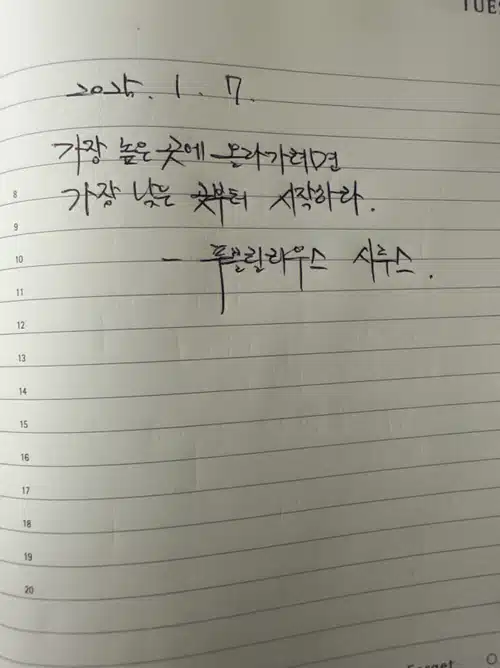 TUES
2025. 1. 7.
가장 높은 곳에 올라가려면
가장 낮은 곳부터 시작하라.
- 푸블릴리우스 시루스.
8
9
10
11
12
13
14
15
16
17
18
19
20